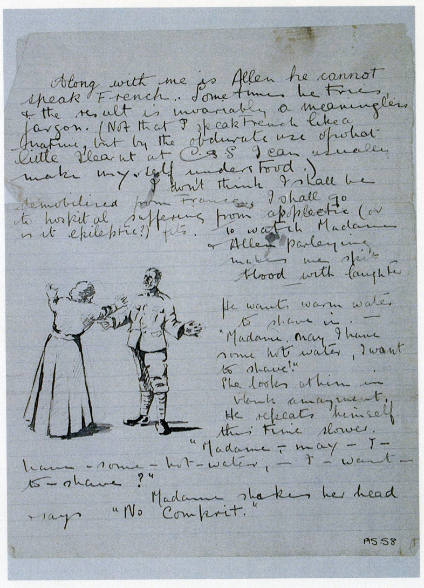 Along with me is Allen he cannot
speak French. Sometimes he tries,
& the result is invariably a meaningless
jargon. (Not that I speak French like a
native, but by the obdurate use of what
little I learnt at C&S I can usually
make myself understood.)
I don't think I shall be
demobilized from France, I shall go
to hospital suffering from apoplectic (or
is it epileptic?) fits. To watch Madame
& Allen parleying
makes me spit
blood with laughter
He wants warm water
to shave in —
"Madame, may I have
some hot water, I want
to shave!"
She looks at him in
blank amazement.
He repeats himself
this time slower.
"Madame – may – I –
have – some – hot – water, – I – want –
to – shave?"
Madame shakes her head
& says "No Comprit."
AS58